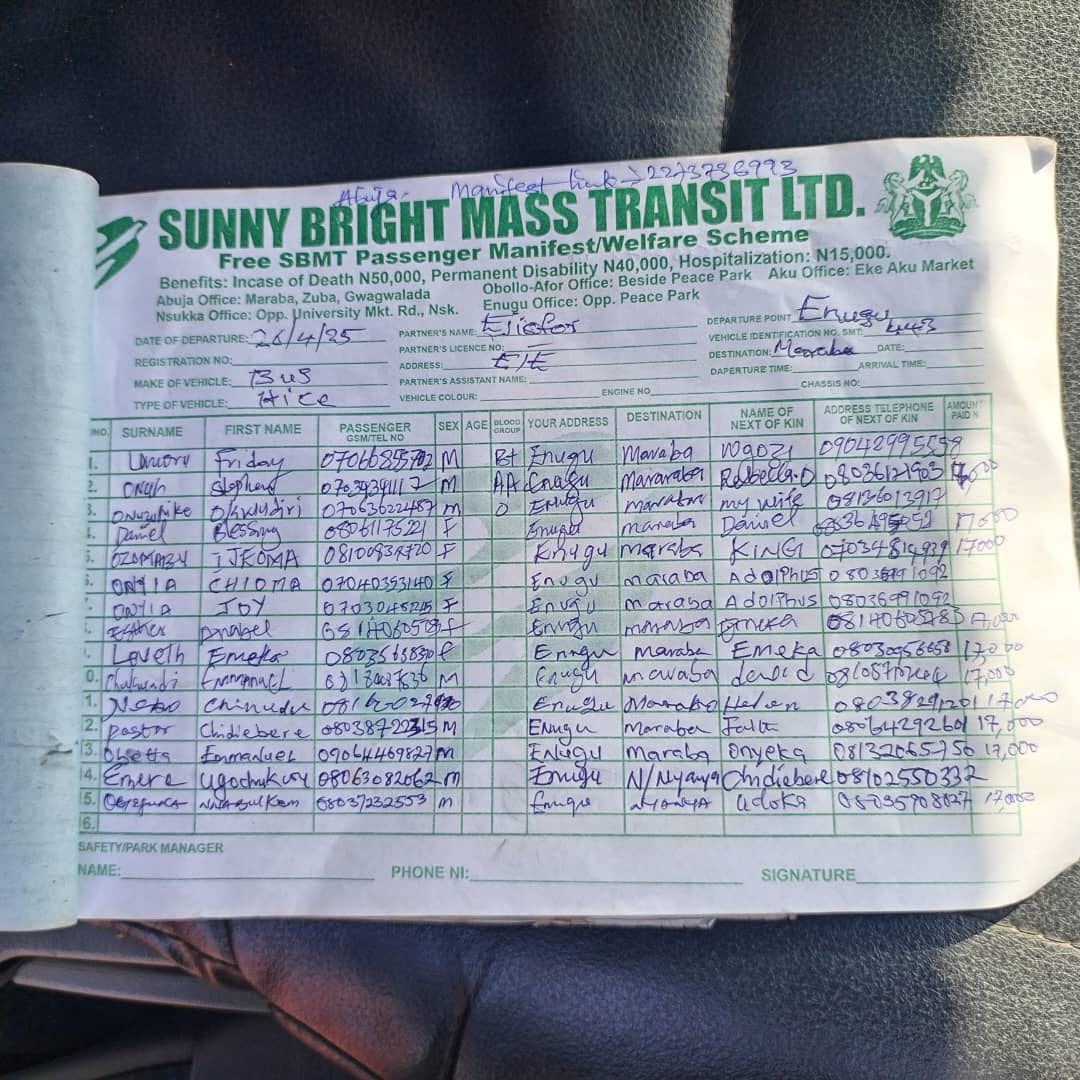 Abuja. Manifest link → 2273736993
SUNNY BRIGHT MASS TRANSIT LTD.
Free SBMT Passenger Manifest/Welfare Scheme
Benefits: Incase of Death N50,000, Permanent Disability N40,000, Hospitalization: N15,000.
Abuja Office: Maraba, Zuba, Gwagwalada Obollo-Afor Office: Beside Peace Park Aku Office: Eke Aku Market
Nsukka Office: Opp. University Mkt. Rd., Nsk. Enugu Office: Opp. Peace Park
DATE OF DEPARTURE: 26/4/25 PARTNER'S NAME: Ejiofor DEPARTURE POINT Enugu
REGISTRATION NO: PARTNER'S LICENCE NO: VEHICLE IDENTIFICATION NO. SMT: 443
MAKE OF VEHICLE: Bus ADDRESS: E/E DESTINATION: Maraba DATE:
TYPE OF VEHICLE: Hice PARTNER'S ASSISTANT NAME: DAPERTURE TIME: ARRIVAL TIME:
VEHICLE COLOUR: ENGINE NO CHASSIS NO:
NO. SURNAME FIRST NAME PASSENGER GSM/TEL NO SEX AGE BLOOD GROUP YOUR ADDRESS DESTINATION NAME OF NEXT OF KIN ADDRESS TELEPHONE OF NEXT OF KIN AMOUNT PAID N
1. Friday M B+ Enugu Maraba Ngozi 09042995558
2. Onuh Stephen M AA Enugu Mararaba Rebella.O 08036121903
3. Okwudiri 07063622487 m O Enugu maraba my wife 08136013917
4. Daniel Blessing 08061175221 F Enugu maraba Daniel 17000
5. OZOMADU IJEOMA F Enugu maraba KING 17000
6. ONYIA CHIOMA 07040353140 F Enugu maraba Adolphus
7. ONYIA JOY F Enugu maraba Adolphus 08036991092
Esther F Enugu maraba Emeka 08140605783 17,000
Loveth Emeka F Enugu Maraba Emeka 08030956658 17,000
0. Emmanuel M Enugu maraba david 17,000
1. Chinedu Enugu Maraba Helen 17,000
2. Pastor Chidiebere 08038722315 M Enugu Maraba Faith 08064292601 17,000
3. Obetta Emmanuel 09064469827 M Enugu Maraba Onyeka 08132065750 17,000
4. Emere Ugochukwu 08063082062 m Enugu N/Nyanya Chidiebere 08102550332
5. 08037232553 m Enugu NYANYA Adoka 17,000
6.
SAFETY/PARK MANAGER
NAME: PHONE NI: SIGNATURE